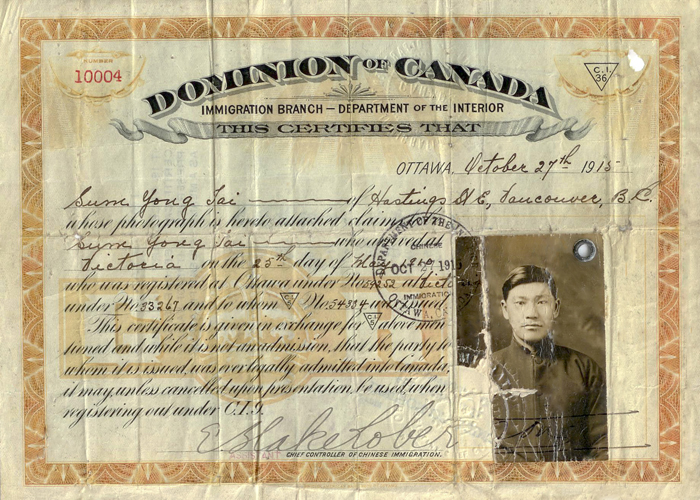 NUMBER
10004
C.I.
36
DOMINION OF CANADA
IMMIGRATION BRANCH — DEPARTMENT OF THE INTERIOR
THIS CERTIFIES THAT
OTTAWA, October 27th 1915
Sum Yong Tai of Hastings St E, Vancouver, B.C.
whose photograph is hereto attached claims
Sum Yong Tai who arrived at
Victoria on the 25th day of May
who was registered at Ottawa under No. 54252 at Victoria
under No. 33267 and to whom C.I. 5 No. 54334 was issued.
This certificate is given in exchange for C.I. 5 above men
tioned and while it is not an admission, that the party to
whom it is issued, was ever legally admitted into Canada,
it may, unless cancelled upon presentation, be used, when
registering out under C.I.9.
DEPARTMENT OF THE
OCT 27 1915
IMMIGRATION
ASSISTANT
CHIEF CONTROLLER OF CHINESE IMMIGRATION.